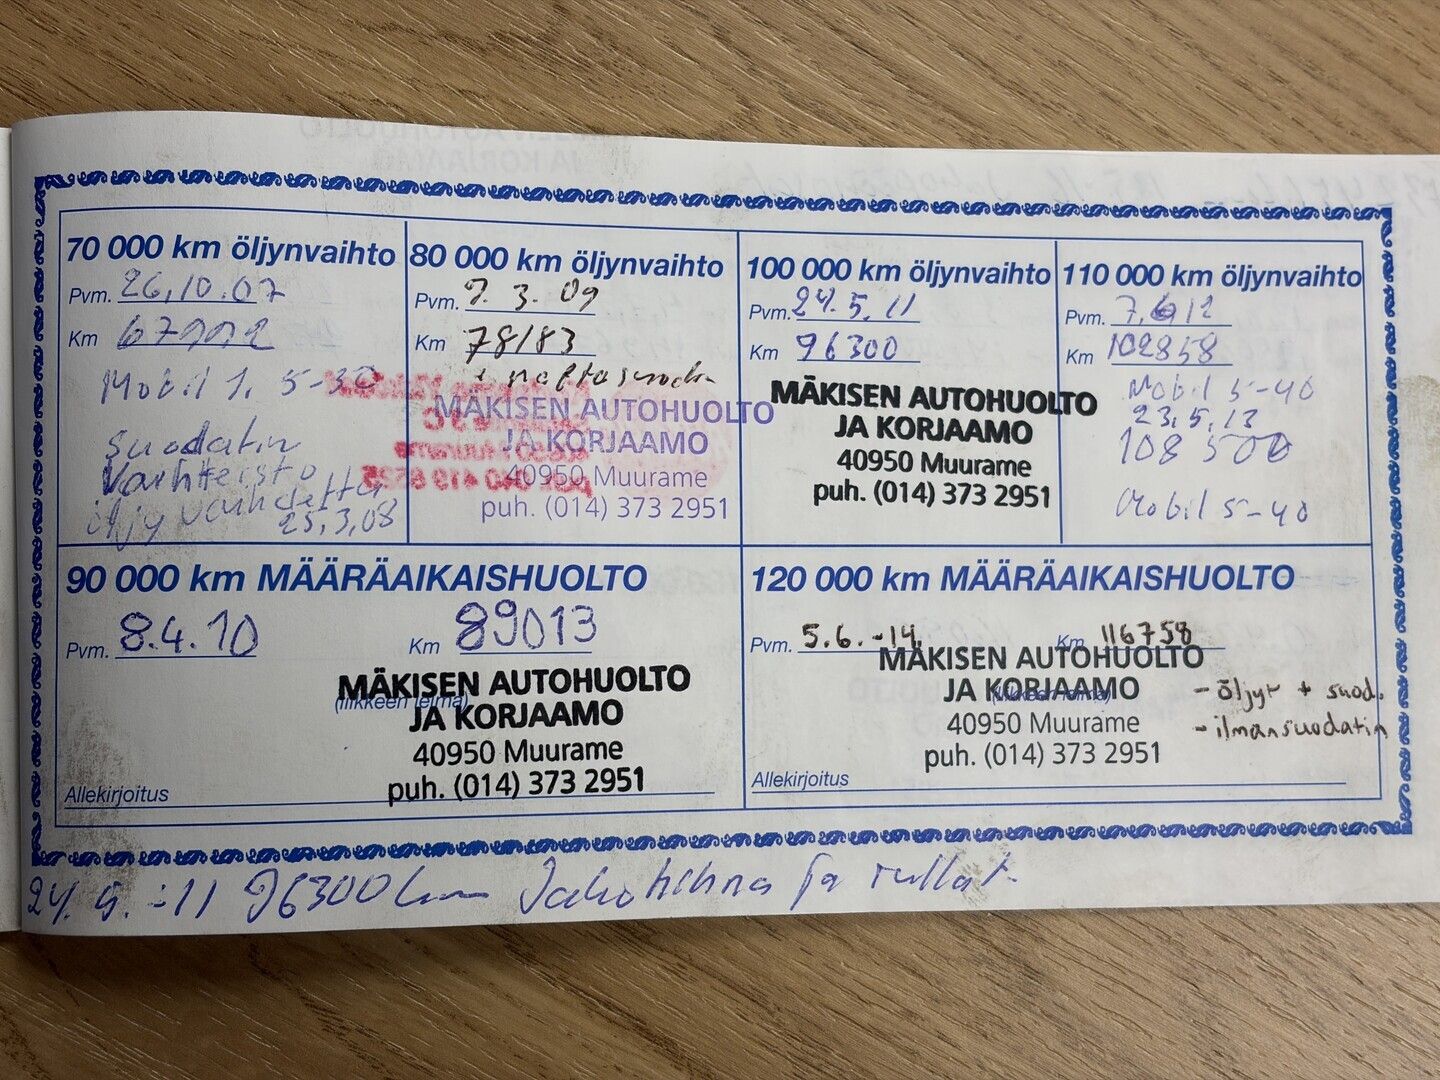 70 000 km öljynvaihto
Pvm. 26.10.07
Km
Mobil 1. 5-30
suodatin
Vaihteisto
öljy vaihdettu
25.3.08
80 000 km öljynvaihto
Pvm. 9.3.09
Km 78183
MÄKISEN AUTOHUOLTO
JA KORJAAMO
40950 Muurame
puh. (014) 373 2951
100 000 km öljynvaihto
Pvm. 24.5.11
Km 96300
MÄKISEN AUTOHUOLTO
JA KORJAAMO
40950 Muurame
puh. (014) 373 2951
110 000 km öljynvaihto
Pvm. 7.6.12
Km 102858
Mobil 5-40
23.5.13
108 500
Mobil 5-40
90 000 km MÄÄRÄAIKAISHUOLTO
Pvm. 8.4.10 Km 89013
MÄKISEN AUTOHUOLTO
(liikkeen leima)
JA KORJAAMO
40950 Muurame
puh. (014) 373 2951
Allekirjoitus
120 000 km MÄÄRÄAIKAISHUOLTO
Pvm. 5.6.-14. Km 116758
MÄKISEN AUTOHUOLTO
(liikkeen leima)
JA KORJAAMO
40950 Muurame
puh. (014) 373 2951
- öljyt + suod.
- ilmansuodatin
Allekirjoitus
24.5.-11 96300 km Jakohihna ja rullat.